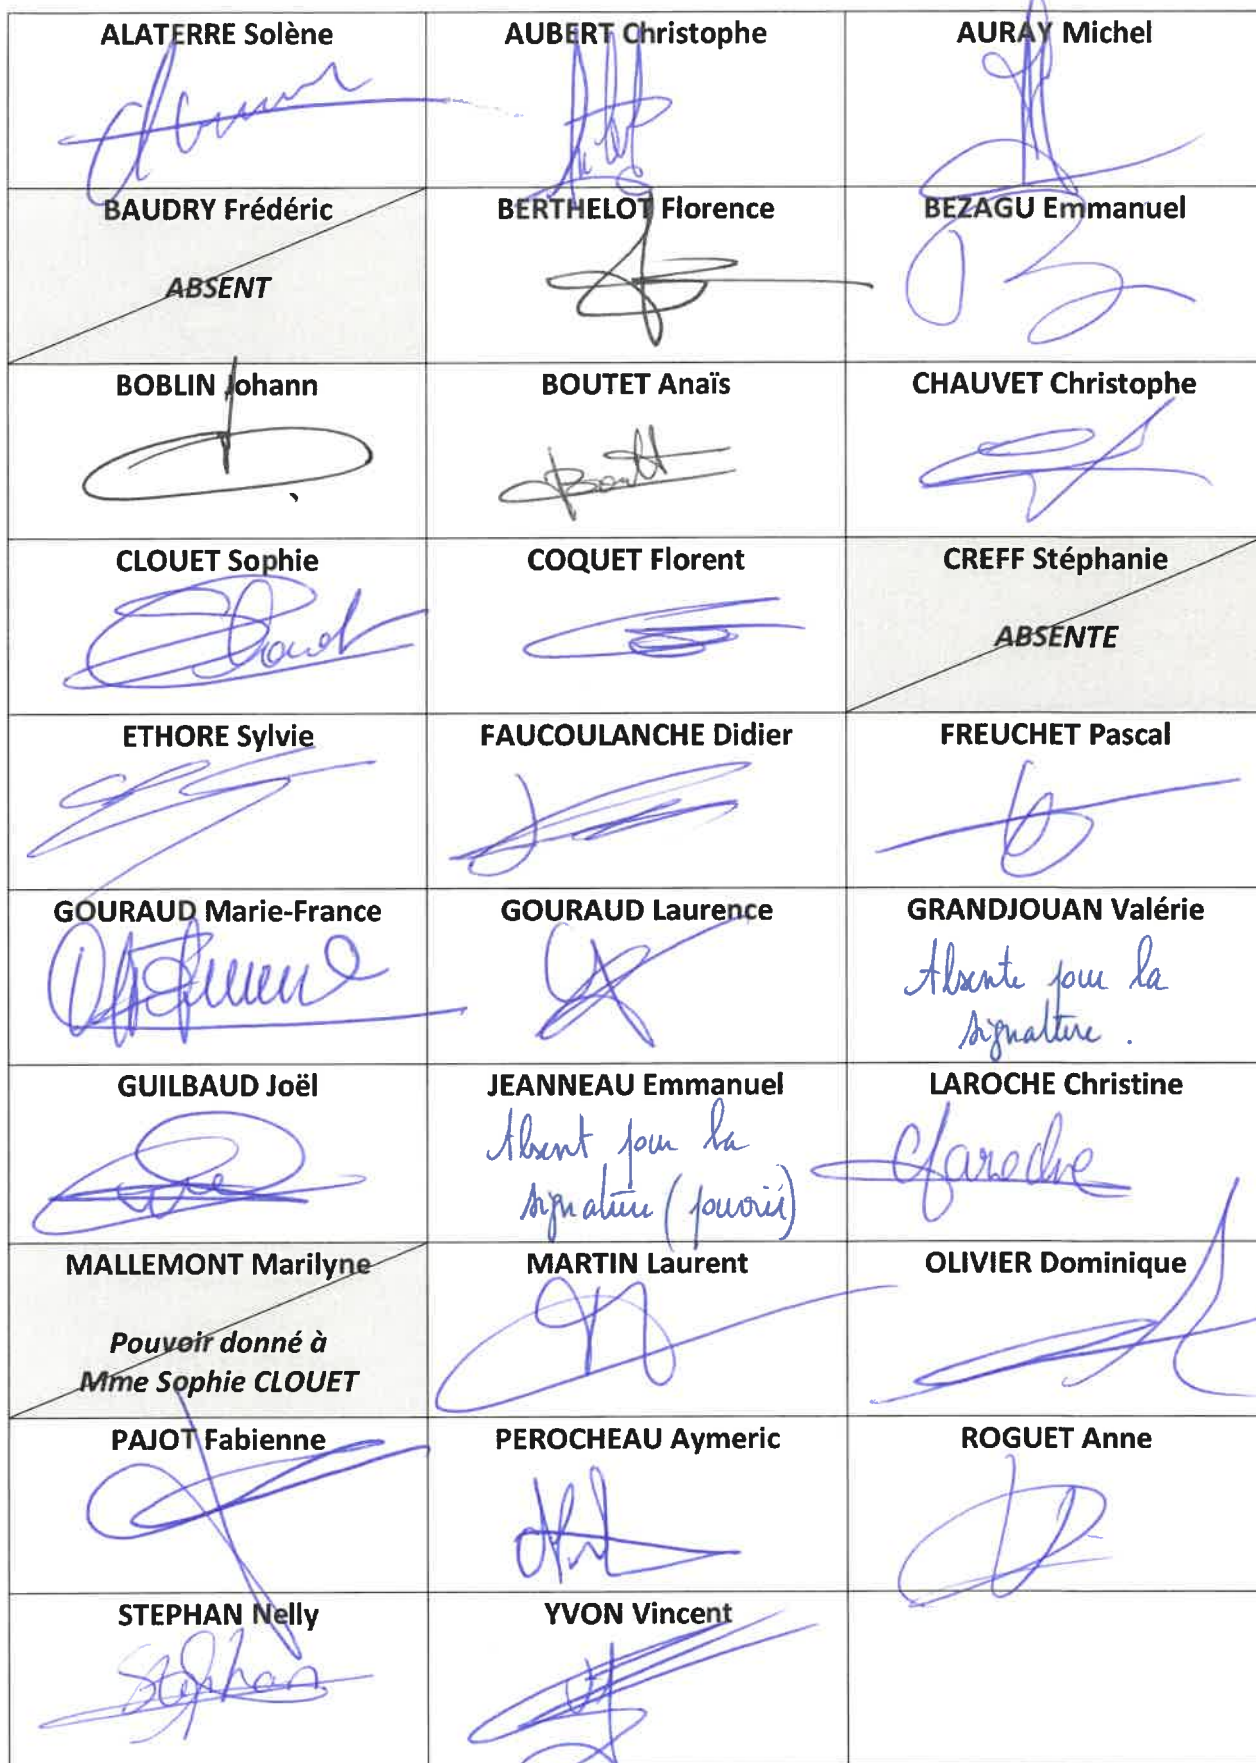 ALATERRE Solène
AUBERT Christophe
AURAY Michel
BAUDRY Frédéric
ABSENT
BERTHELOT Florence
BEZAGU Emmanuel
BOBLIN Johann
BOUTET Anaïs
CHAUVET Christophe
CLOUET Sophie
Clouet
COQUET Florent
CREFF Stéphanie
ABSENTE
ETHORE Sylvie
FAUCOULANCHE Didier
FREUCHET Pascal
GOURAUD Marie-France
GOURAUD Laurence
GRANDJOUAN Valérie
Absente pour la
signature .
GUILBAUD Joël
JEANNEAU Emmanuel
Absent pour la
signature (pouvoir)
LAROCHE Christine
CLaroche
MALLEMONT Marilyne
Pouvoir donné à
Mme Sophie CLOUET
MARTIN Laurent
OLIVIER Dominique
PAJOT Fabienne
PEROCHEAU Aymeric
ROGUET Anne
STEPHAN Nelly
Stephan
YVON Vincent